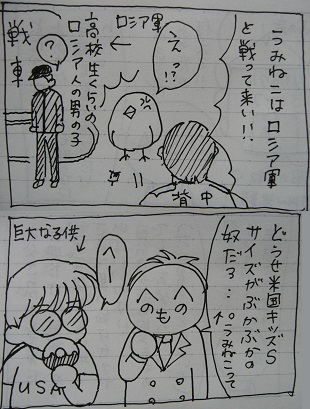 うみねこはロシア軍
と戦って来い!!
えっ!?
背中
ロシア軍
←
高校生くらいの
ロシア人の男の子
?
戦車
どうせ米国キッズS
サイズがぶかぶかの
奴だろ…
うみねこって
へー
巨大なる供
USA